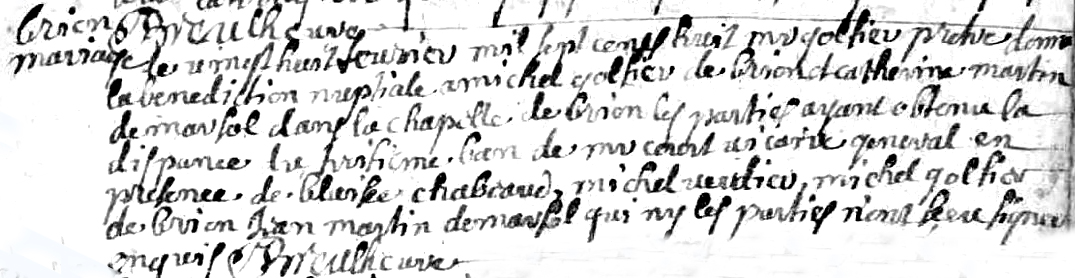 brion
mariage
le vingt huit feurier mil sept cents huit mr goltier pretre donna
la benediction nuptiale a michel goltier de brion et catherine martin
de marsol dans la chapelle de brion les parties ayant obtenu la
dispance du troisieme ban de mr vicaire general en
presence de blaise chabraud, michel verdier, michel goltier
de brion jean martin de marsol qui ny les parties n'ont sceu signer
enquis